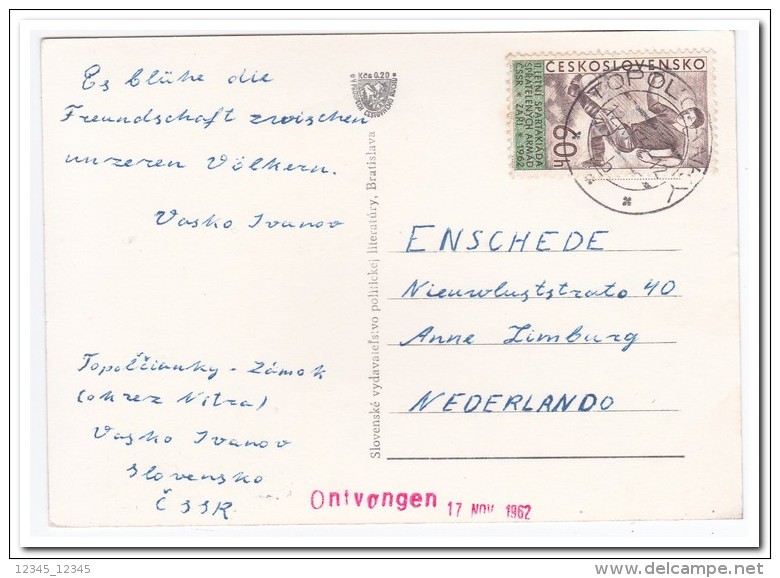 Es blühe die
Freundschaft zwischen
unzeren Völkern.
Vasko Ivanov
Topolčianky - Zámok
(okrez Nitra)
Vasko Ivanov
Slovensko
ČSSR
Kčs 0.20
Slovenské vydavateľstvo politickej literatúry, Bratislava
ČESKOSLOVENSKO
II. LETNÍ SPARTAKIÁDA
SPŘÁTELENÝCH ARMÁD
ČSSR * ZÁŘÍ * 1962
60h
ENSCHEDE
Nieuwluststrato 40
Anne Limburg
NEDERLANDO
Ontvangen 17 NOV. 1962
12345_12345